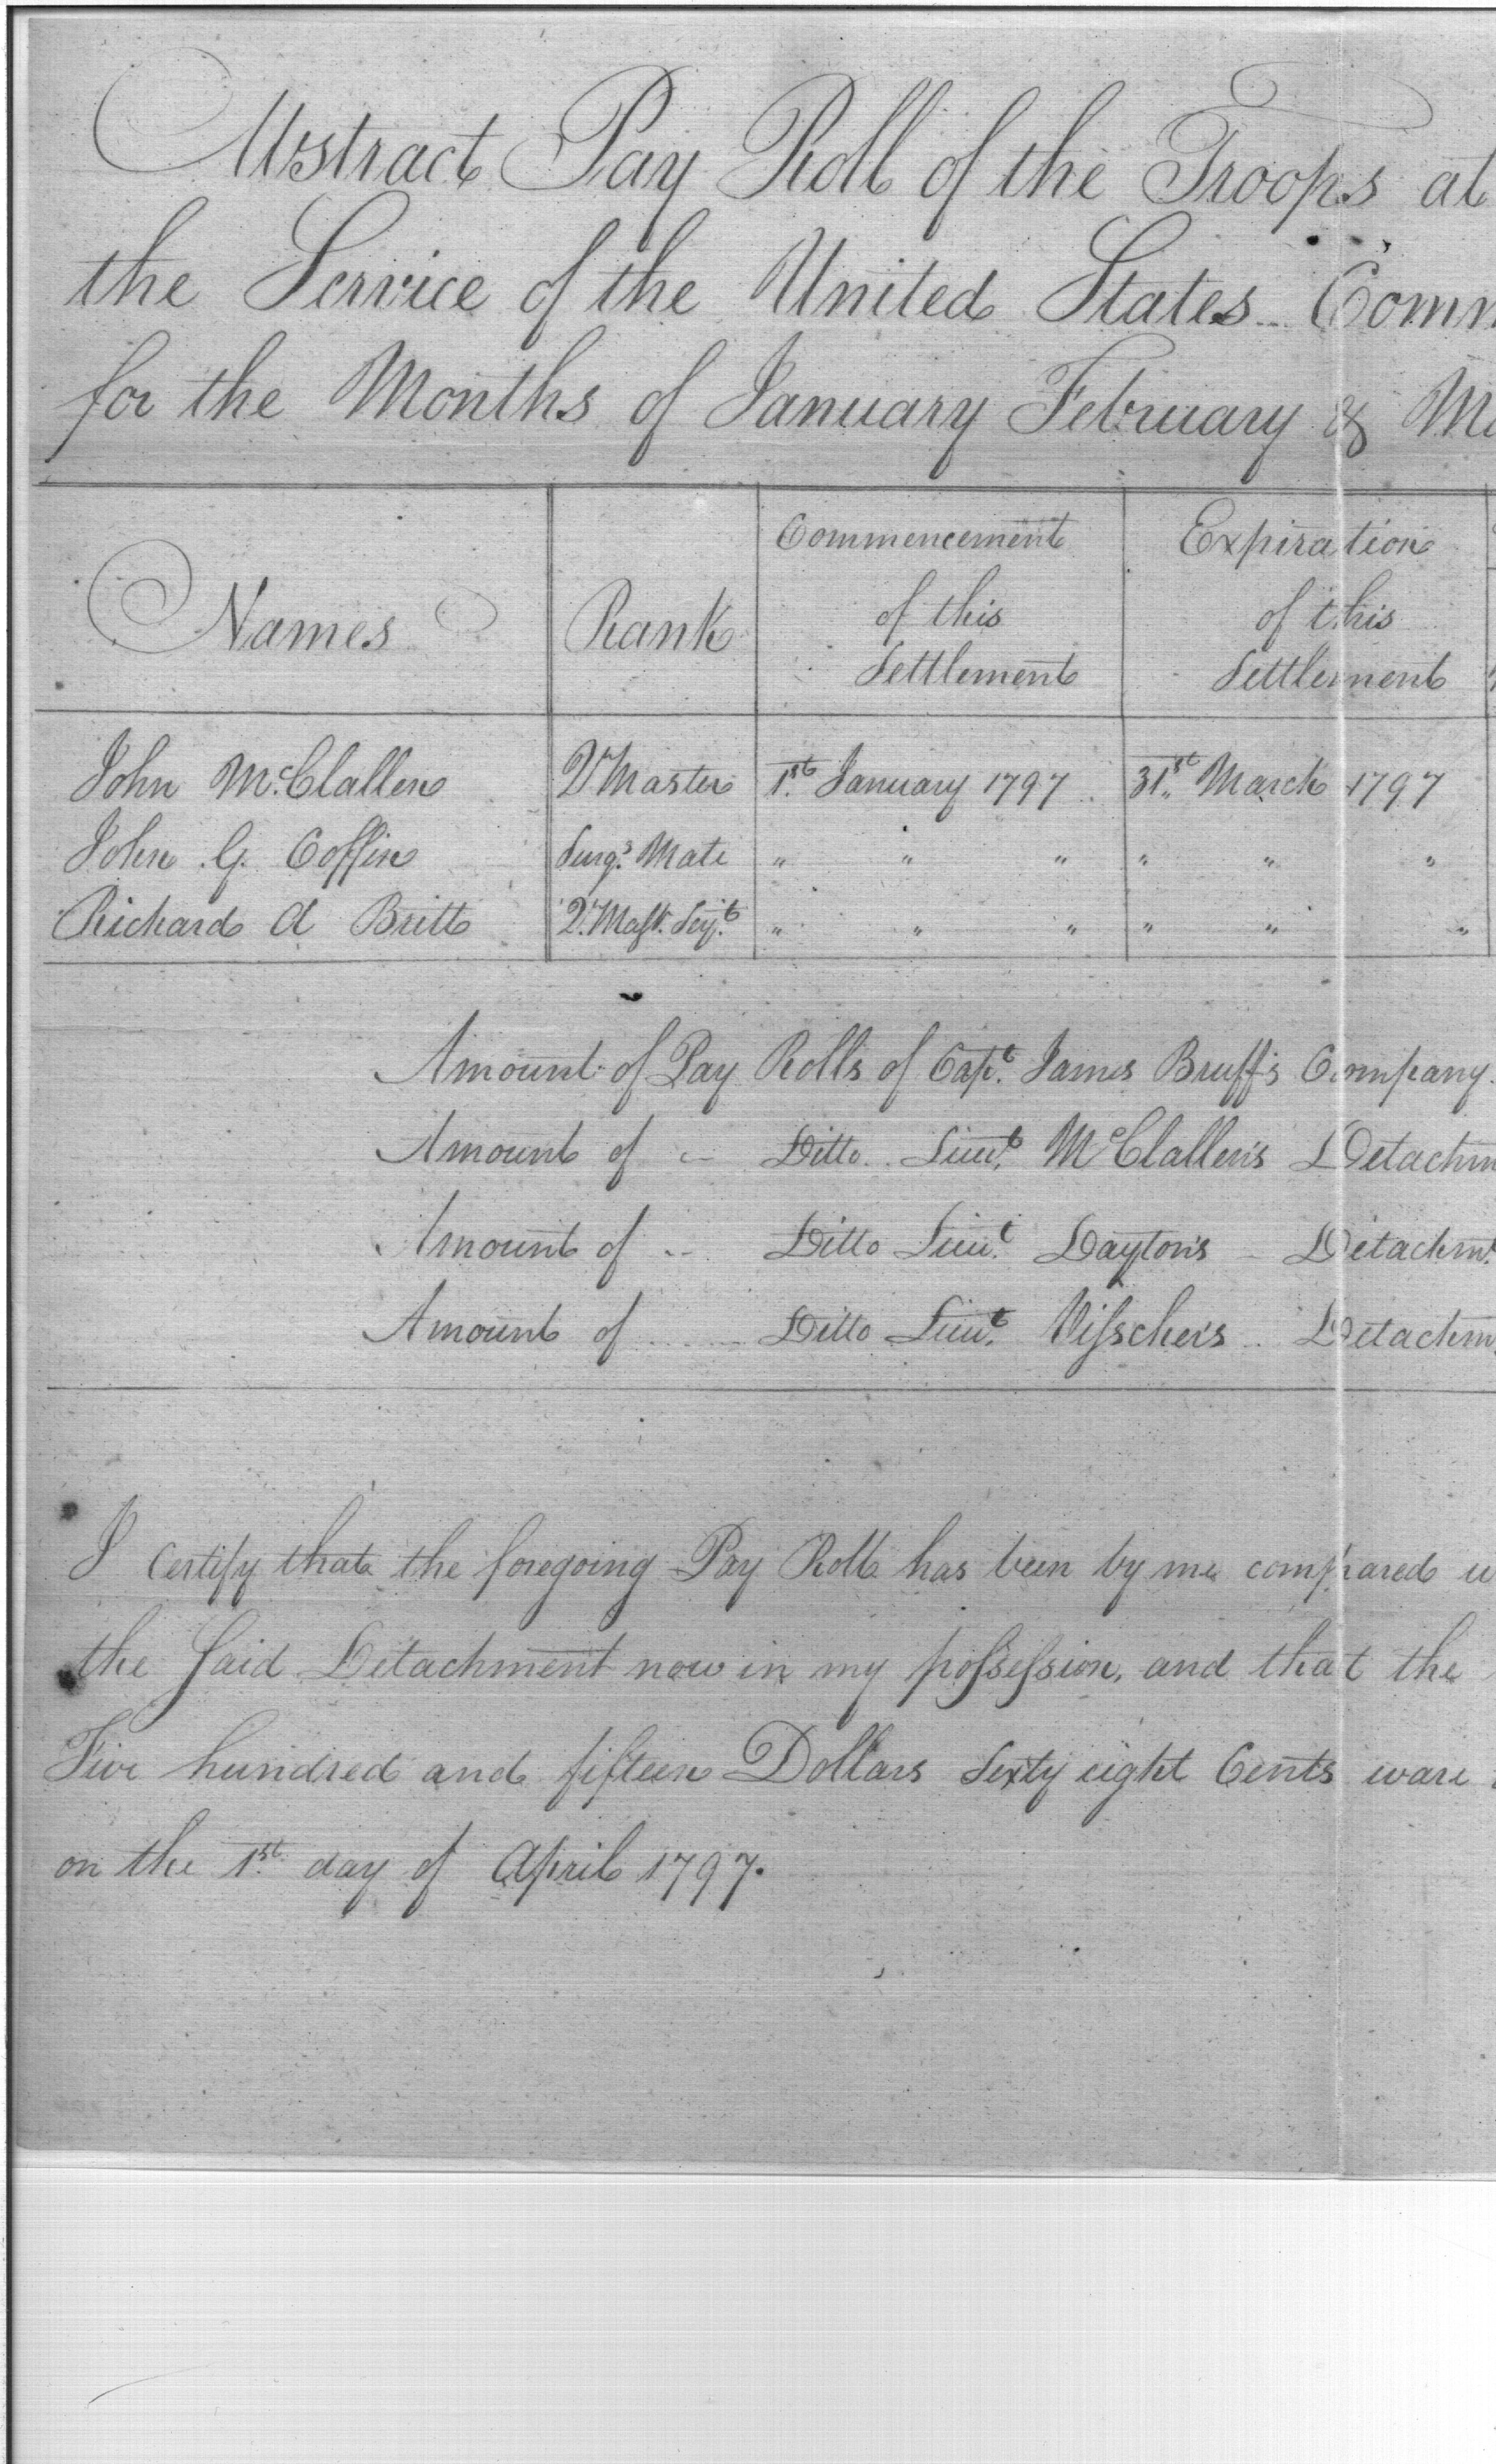 Abstract Pay Roll of the Troops at
the Service of the United States Comm
for the Months of January February & Ma
Names Rank Commencement of this Settlement Expiration of this Settlement
John McClallen Qr Master 1st January 1797 31st March 1797
John G. Coffin Surgs Mate " " " " " "
Richard A Britt Qr Mastr Serjt " " " " " "
Amount of Pay Rolls of Capt James Bruff's Company
Amount of Ditto Lieut McClallen's Detachm
Amount of Ditto Lieut Dayton's Detachmt
Amount of Ditto Lieut Visscher's Detachm
I Certify that the foregoing Pay Roll has been by me compared w
the said Detachment now in my possession, and that the
Five hundred and fifteen Dollars Sixty eight Cents ware
on the 1st day of April 1797.